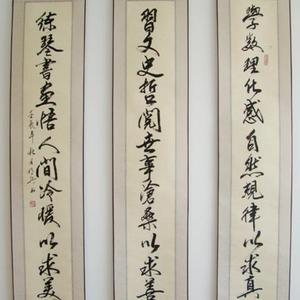 學數理化感自然規律以求真
習文史哲閱世事滄桑以求善
練琴書畫悟人間冷暖以求美